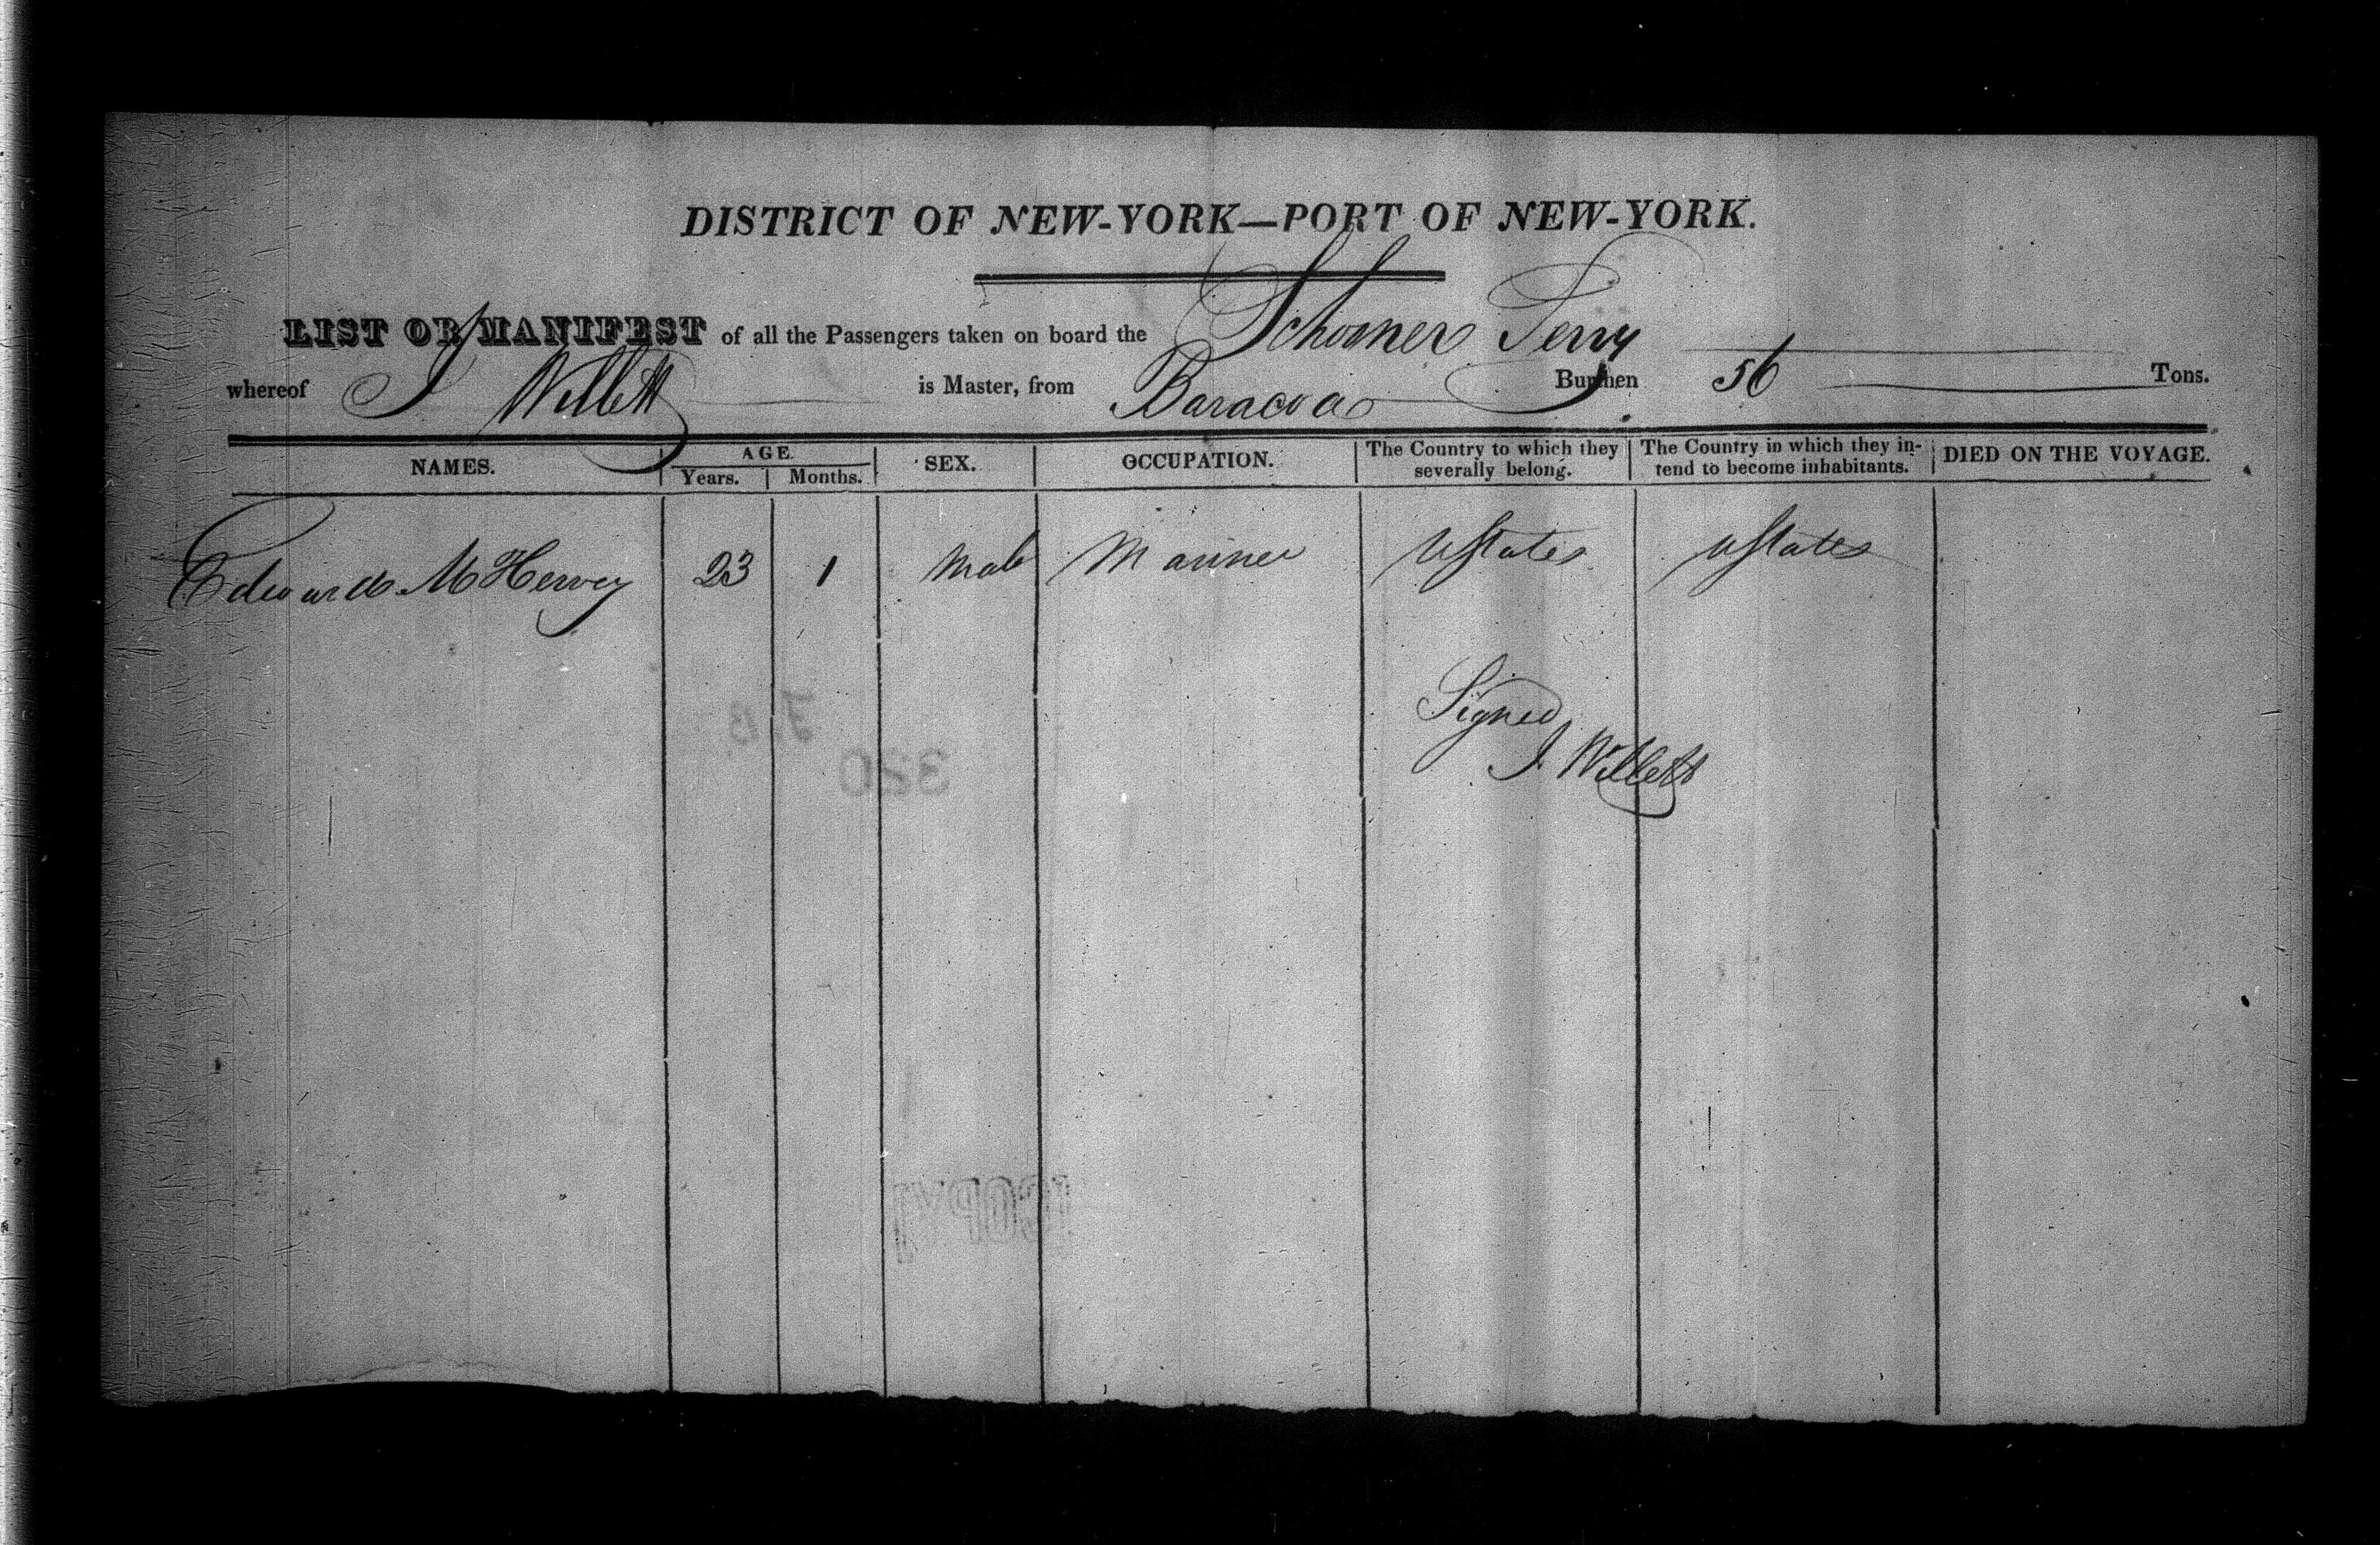 DISTRICT OF NEW-YORK—PORT OF NEW-YORK.
LIST OR MANIFEST of all the Passengers taken on board the Schooner Perry
whereof J Willett is Master, from Baracoa Burthen 56 Tons.
NAMES. AGE. Years. Months. SEX. OCCUPATION. The Country to which they severally belong. The Country in which they intend to become inhabitants. DIED ON THE VOYAGE.
Edward M Hervey 23 1 Male Mariner UStates UStates
Signed
J. Willett
320
COPY